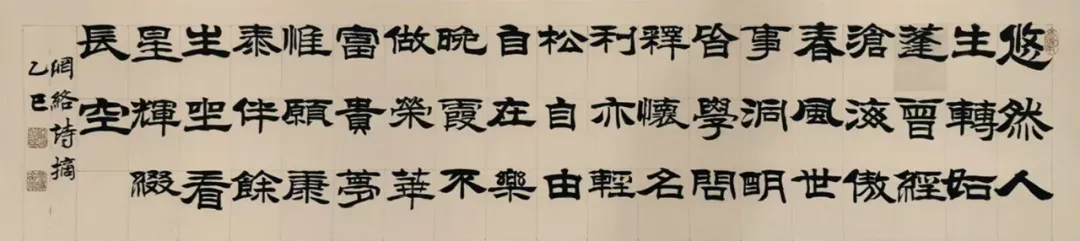 悠然人
生轉如
蓬曾經
滄海傲
春風世
事洞明
皆學問
釋懷名
利亦輕
松自由
自在樂
晚霞不
做榮華
富貴夢
惟願康
泰伴餘
生坐看
星輝綴
長空
網絡詩摘
乙巳